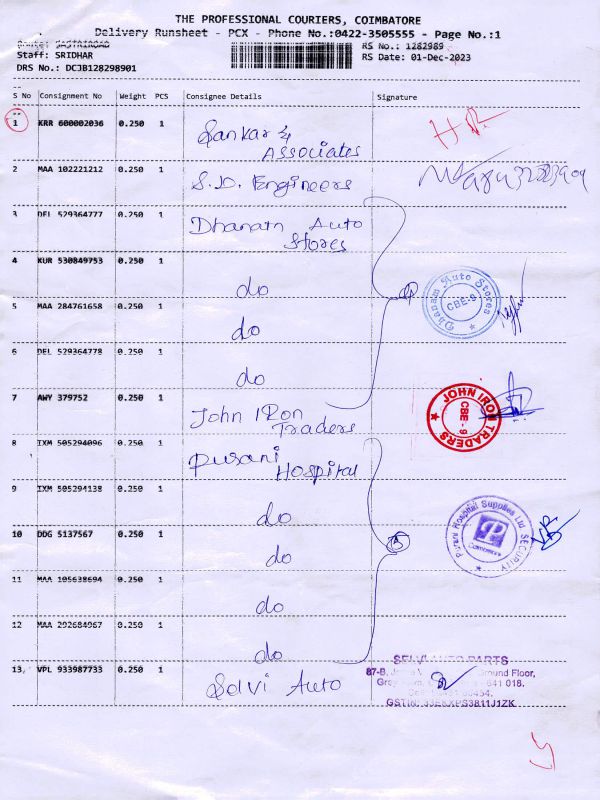 THE PROFESSIONAL COURIERS, COIMBATORE
Delivery Runsheet - PCX - Phone No.:0422-3505555 - Page No.:1
RS No.: 1282989
Staff: SRIDHAR
RS Date: 01-Dec-2023
DRS No.: DCJB128298901
S No Consignment No Weight PCS Consignee Details Signature
1 KRR 600002036 0.250 1 Sankar &
Associates
2 MAA 102221212 0.250 1 S.D. Engineers
3 DEL 529364777 0.250 1 Dhanam Auto
Stores
4 KUR 530849753 0.250 1 do
5 MAA 284761658 0.250 1 do
6 DEL 529364778 0.250 1 do
Dhanam Auto Stores
CBE-9
7 AWY 379752 0.250 1 John IRon
Traders
JOHN IRON TRADERS
CBE - 9
8 IXM 505294096 0.250 1 Purani
Hospital
9 IXM 505294138 0.250 1 do
10 DDG 5137567 0.250 1 do
Purani Hospital Supplies Ltd SECURITY
11 MAA 105638694 0.250 1 do
12 MAA 292684967 0.250 1 do
13 VPL 933987733 0.250 1 Selvi Auto
SELVI AUTO PARTS
87-B, Ground Floor,
641 018.
GSTIN: 33EKXPS3811J1ZK